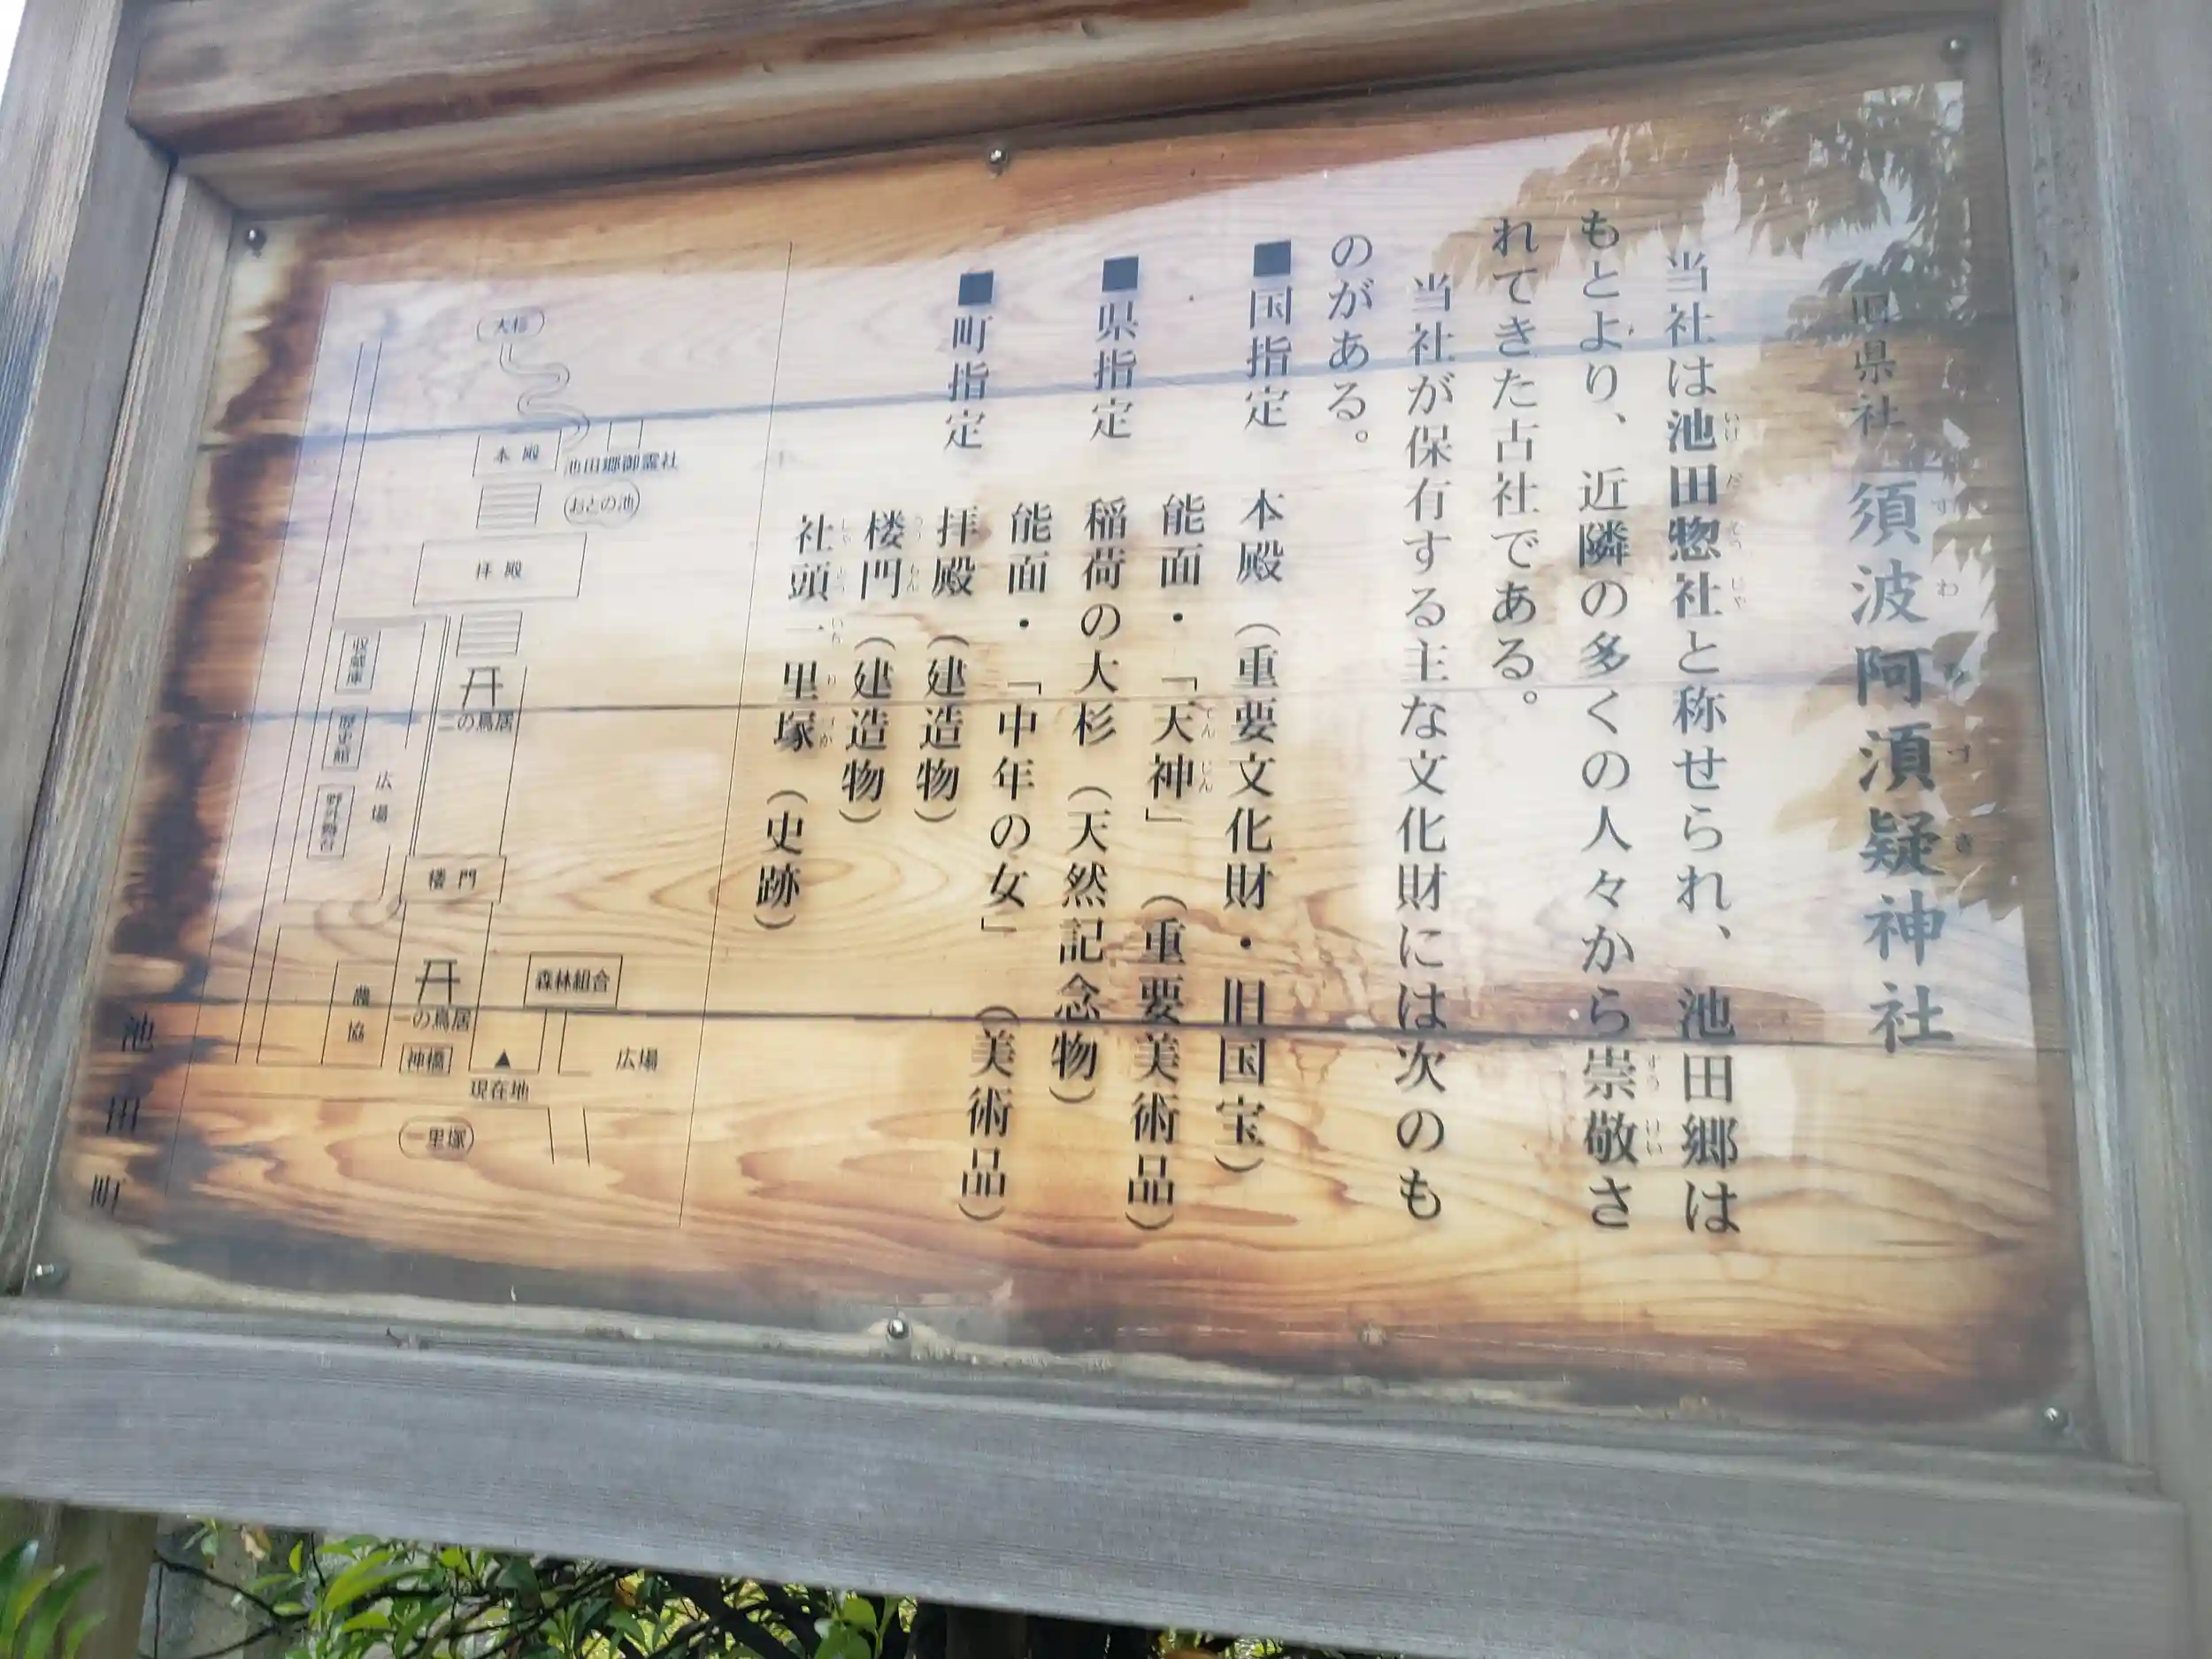 旧県社 須波阿湏疑神社
当社は池田惣社と称せられ、池田郷は
もとより、近隣の多くの人々から崇敬さ
れてきた古社である。
当社が保有する主な文化財には次のも
のがある。
■国指定 本殿（重要文化財・旧国宝）
能面・「天神」（重要美術品）
■県指定 稲荷の大杉（天然記念物）
能面・「中年の女」（美術品）
■町指定 拝殿（建造物）
楼門（建造物）
社頭一里塚（史跡）
大杉
本殿
池田郷御霊社
おとの池
拝殿
収蔵庫
二の鳥居
歴史館
広場
野外舞台
楼門
森林組合
農協
一の鳥居
神橋
現在地
広場
一里塚
池田町